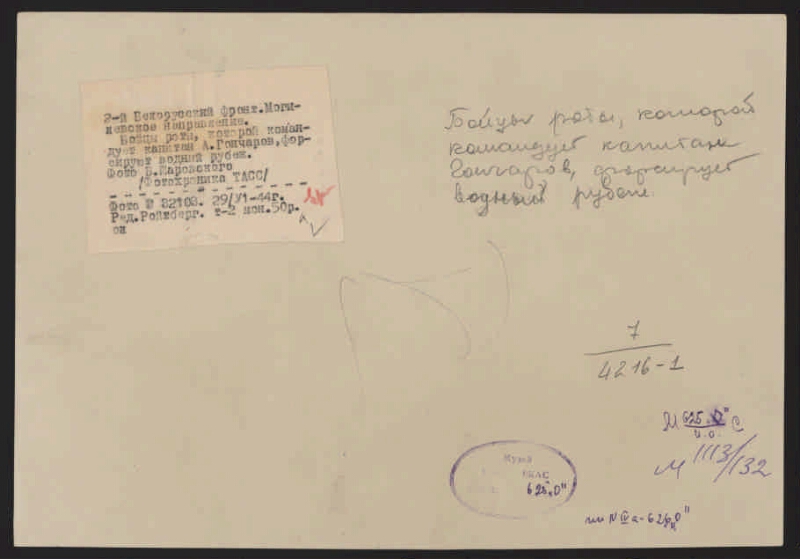 2-й Белорусский фронт. Моги-
левское направление.
Бойцы роты, которой коман-
дует капитан А.Гончаров, фор-
сирует водный рубеж.
Фото В.Шаровского
/Фотохроника ТАСС/
Фото № 82108. 29/У1-44г.
Ред. Ройтберг. т-2 кон.50р.
он
Бойцы роты, которой
командует капитан
Гончаров, форсирует
водный рубеж.
7
4216-1
М 625 "С
и.о.
М 1113/132
Музей
625 „О"